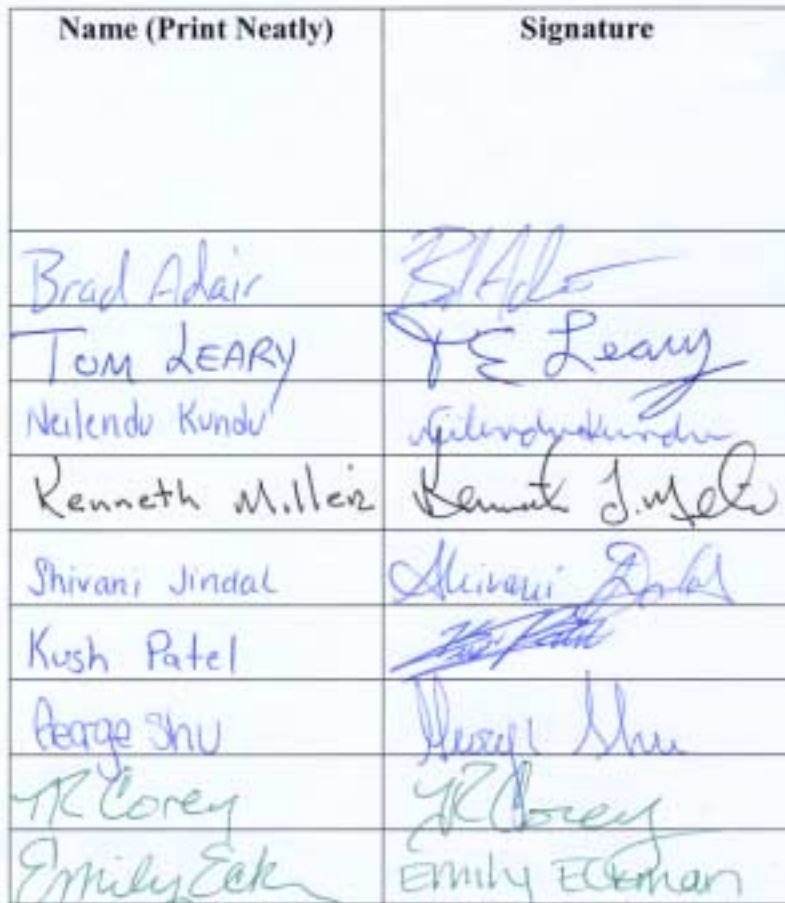 Name (Print Neatly) Signature
Brad Adair Bd Adair
TOM LEARY T E Leary
Neilendu Kundu Neilendu Kundu
Kenneth Miller Kenneth J. Miller
Shivani Jindal Shivani Jindal
Kush Patel Kush Patel
George Shu George Shu
YR Corey YR Corey
Emily Eck EMily ECKman